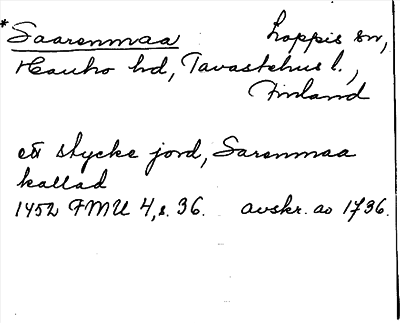 *Saarenmaa Loppis sn,
Hauho hd, Tavastehus l.,
Finland
ett stycke jord, Sarenmaa
kallad
1452 FMU 4, s. 36. avskr. ao 1736.